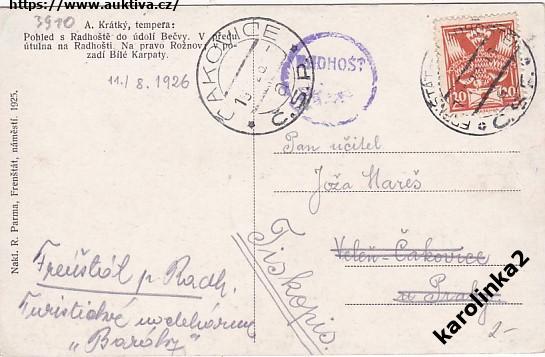 https://www.auktiva.cz/
3910
A. Krátký, tempera:
Pohled s Radhoště do údolí Bečvy. V předu
útulna na Radhošti. Na pravo Rožnov, v po-
zadí Bílé Karpaty.
11./8. 1926
ČAKOVICE
Č.S.P.
RADHOŠŤ
20 20
Pan učitel
Joža Mareš
Veleň-Čakovice
u Prahy
Tiskopis.
Frenštát p. Radh.
Turistické
Nakl. R. Parma, Frenštát, náměstí. 1925.
karolinka2
2-